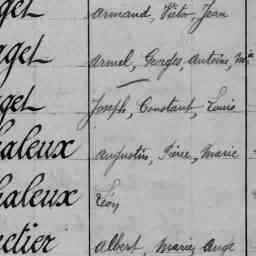 et Armand, Victor, Jean
get Armel, Georges, Antoine, Mie
get Joseph, Constant, Louis
haleux Augustin, Pierre, Marie
haleux Léon
etier Albert, Marie, Ange